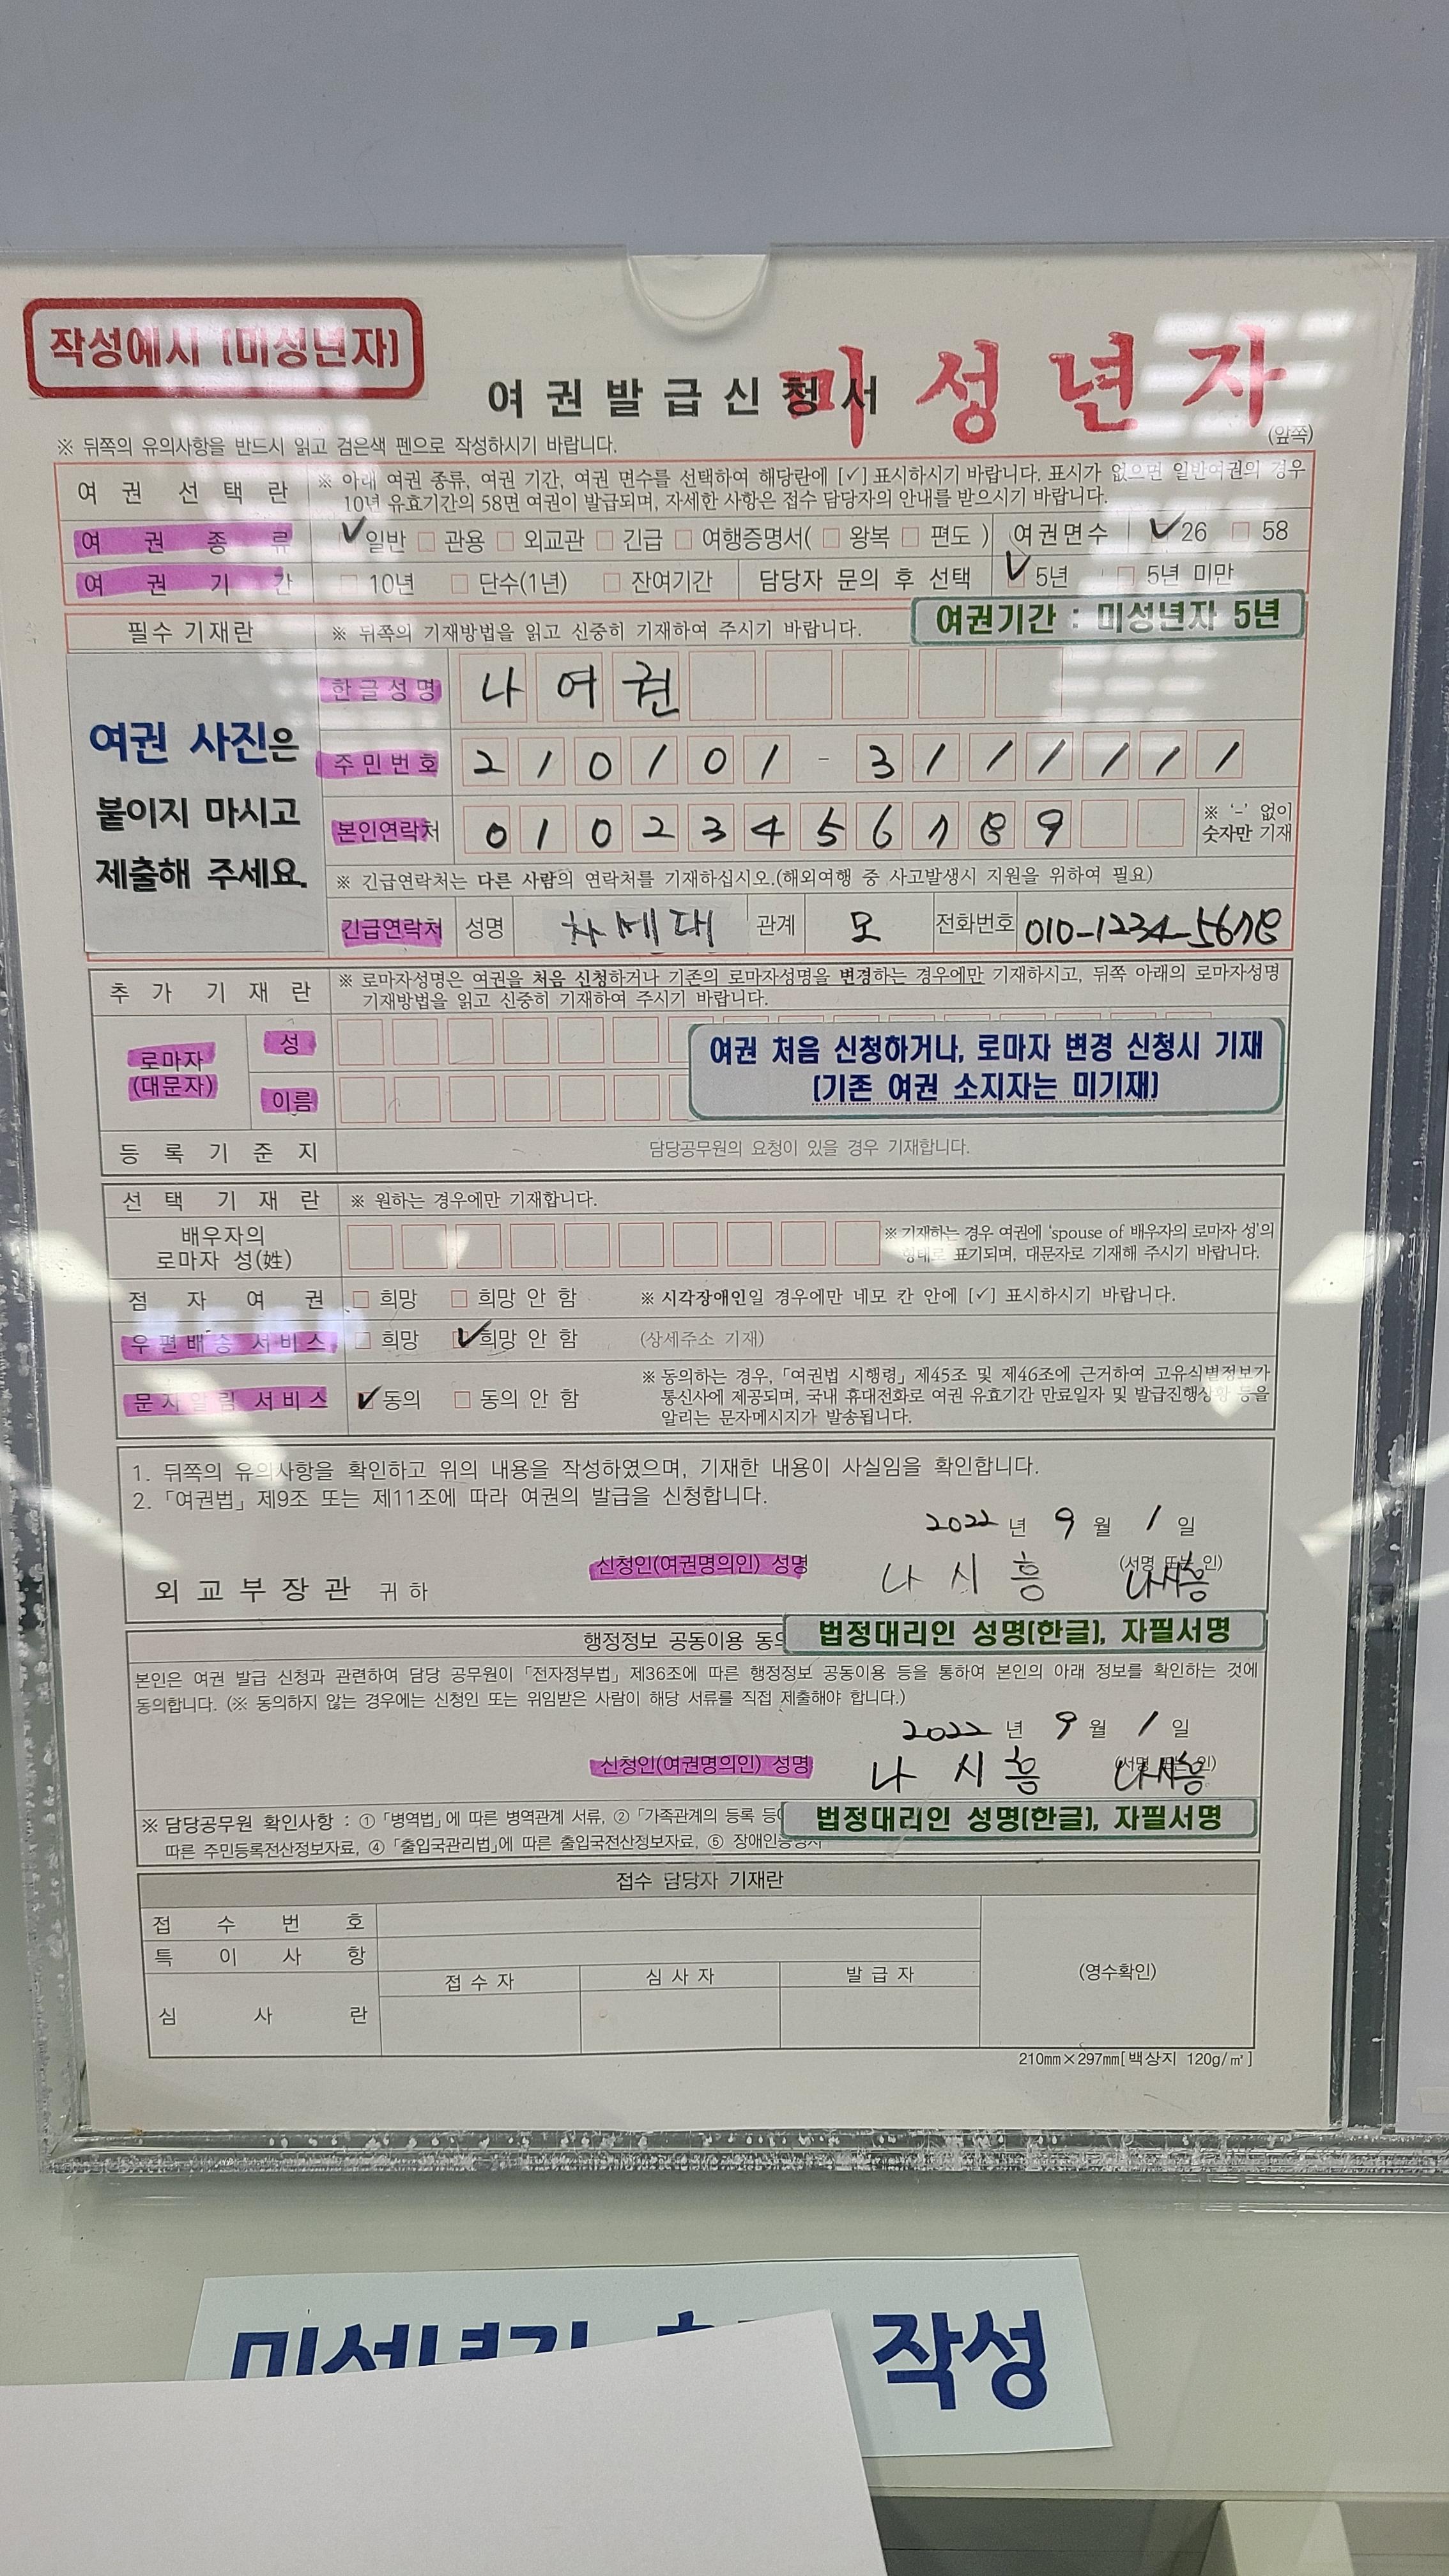 작성예시 [미성년자]
여권발급신청서
미성년자
(앞쪽)
※ 뒤쪽의 유의사항을 반드시 읽고 검은색 펜으로 작성하시기 바랍니다.
여권 선택란 ※ 아래 여권 종류, 여권 기간, 여권 면수를 선택하여 해당란에 [✓] 표시하시기 바랍니다. 표시가 없으면 일반여권의 경우
10년 유효기간의 58면 여권이 발급되며, 자세한 사항은 접수 담당자의 안내를 받으시기 바랍니다.
여권종류 ✓ 일반 □ 관용 □ 외교관 □ 긴급 □ 여행증명서( □ 왕복 □ 편도 ) 여권면수 ✓ 26 □ 58
여권기간 □ 10년 □ 단수(1년) □ 잔여기간 담당자 문의 후 선택 ✓ 5년 □ 5년 미만
여권기간 : 미성년자 5년
필수 기재란 ※ 뒤쪽의 기재방법을 읽고 신중히 기재하여 주시기 바랍니다.
여권 사진은
붙이지 마시고
제출해 주세요.
한글성명 나여권
주민번호 210101 - 3111111
본인연락처 01023456789 ※ '-' 없이
숫자만 기재
※ 긴급연락처는 다른 사람의 연락처를 기재하십시오.(해외여행 중 사고발생시 지원을 위하여 필요)
긴급연락처 성명 차세대 관계 모 전화번호 010-1234-5678
추가 기재란 ※ 로마자성명은 여권을 처음 신청하거나 기존의 로마자성명을 변경하는 경우에만 기재하시고, 뒤쪽 아래의 로마자성명
기재방법을 읽고 신중히 기재하여 주시기 바랍니다.
로마자
(대문자)
성
이름
여권 처음 신청하거나, 로마자 변경 신청시 기재
[기존 여권 소지자는 미기재]
등록기준지 담당공무원의 요청이 있을 경우 기재합니다.
선택 기재란 ※ 원하는 경우에만 기재합니다.
배우자의
로마자 성(姓)
※ 기재하는 경우 여권에 'spouse of 배우자의 로마자 성'의
형태로 표기되며, 대문자로 기재해 주시기 바랍니다.
점자여권 □ 희망 □ 희망 안 함 ※ 시각장애인일 경우에만 네모 칸 안에 [✓] 표시하시기 바랍니다.
우편배송 서비스 □ 희망 ✓ 희망 안 함 (상세주소 기재)
문자알림 서비스 ✓ 동의 □ 동의 안 함 ※ 동의하는 경우, 「여권법 시행령」 제45조 및 제46조에 근거하여 고유식별정보가
통신사에 제공되며, 국내 휴대전화로 여권 유효기간 만료일자 및 발급진행상황 등을
알리는 문자메시지가 발송됩니다.
1. 뒤쪽의 유의사항을 확인하고 위의 내용을 작성하였으며, 기재한 내용이 사실임을 확인합니다.
2. 「여권법」 제9조 또는 제11조에 따라 여권의 발급을 신청합니다.
2022 년 9 월 1 일
신청인(여권명의인) 성명 나시흥 (서명 또는 인) 나시흥
외교부장관 귀하
법정대리인 성명(한글), 자필서명
행정정보 공동이용 동의
본인은 여권 발급 신청과 관련하여 담당 공무원이 「전자정부법」 제36조에 따른 행정정보 공동이용 등을 통하여 본인의 아래 정보를 확인하는 것에
동의합니다. (※ 동의하지 않는 경우에는 신청인 또는 위임받은 사람이 해당 서류를 직접 제출해야 합니다.)
2022 년 9 월 1 일
신청인(여권명의인) 성명 나시흥 (서명 인) 나시흥
※ 담당공무원 확인사항 : ① 「병역법」에 따른 병역관계 서류, ② 「가족관계의 등록 등에
법정대리인 성명(한글), 자필서명
따른 주민등록전산정보자료, ④ 「출입국관리법」에 따른 출입국전산정보자료, ⑤ 장애인증명서
접수 담당자 기재란
접수번호
특이사항
심사란 접수자 심사자 발급자 (영수확인)
210㎜×297㎜[백상지 120g/㎡]
작성